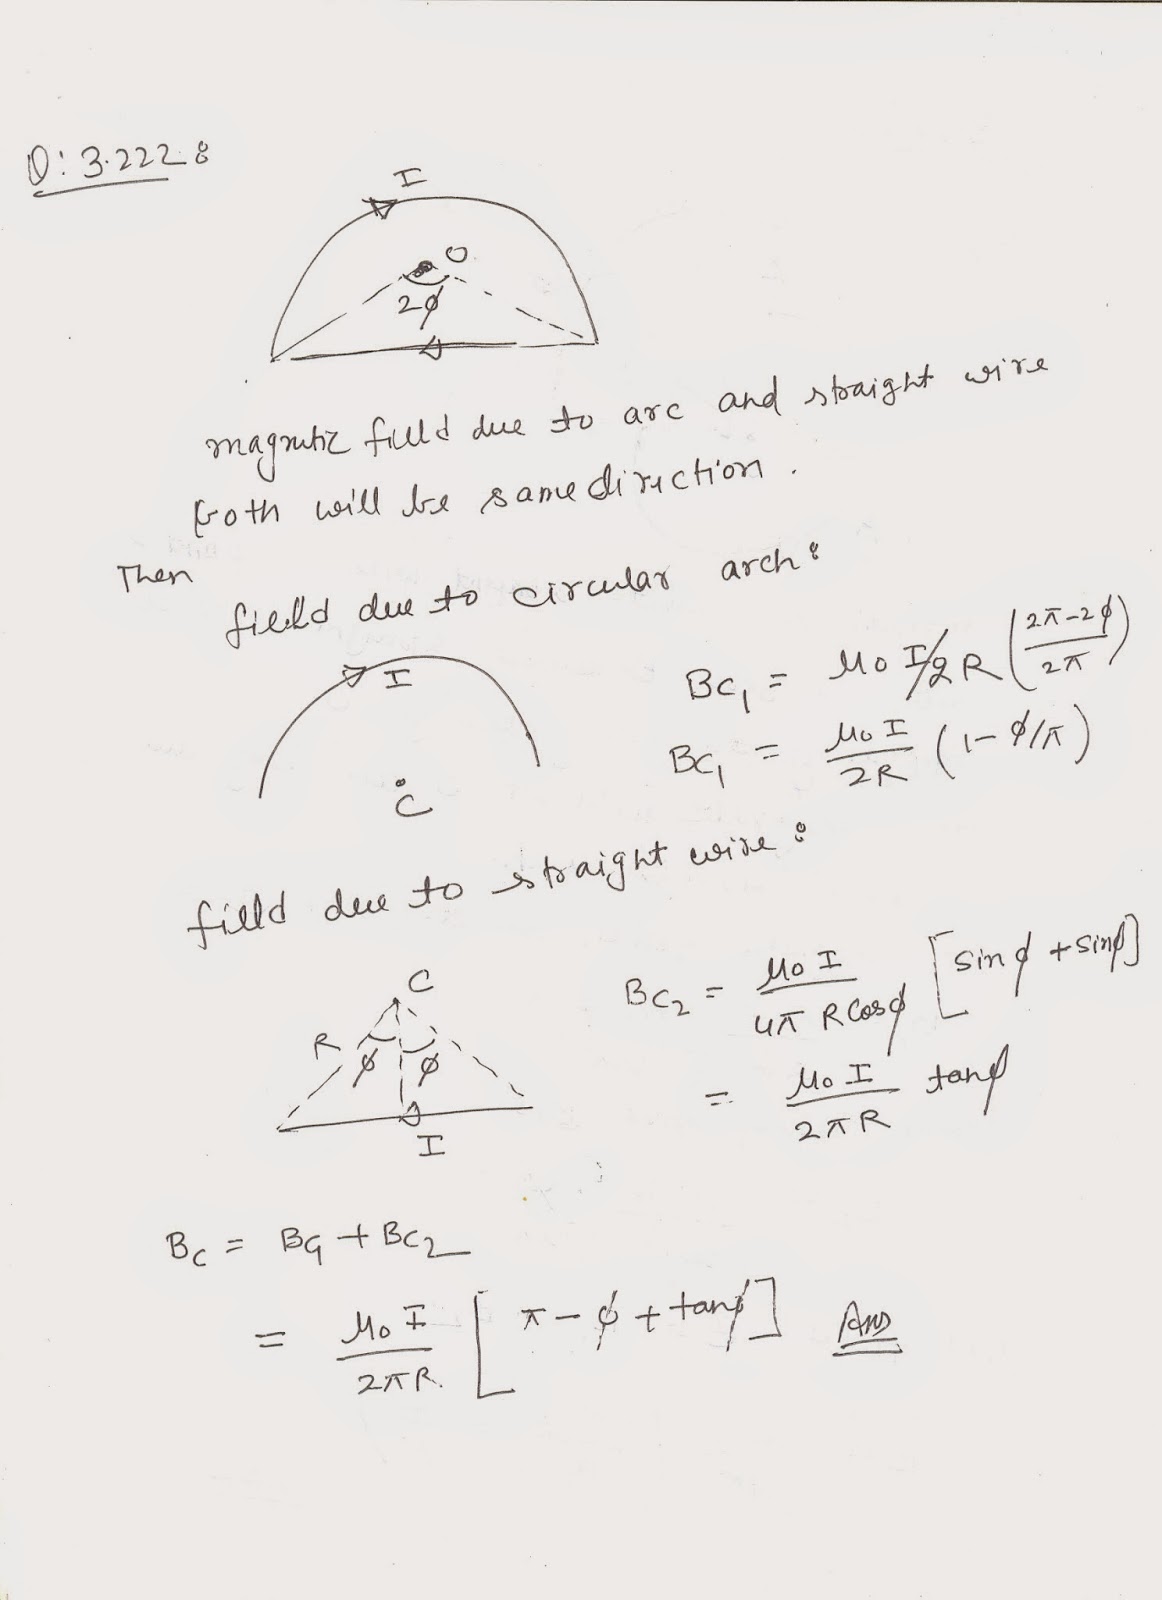 Q: 3.222 :
I
O
2ϕ
magnetic field due to arc and straight wire
both will be same direction.
Then
field due to circular arch:
I
C
Bc₁ = μ₀ I/2R (2π-2ϕ / 2π)
Bc₁ = μ₀ I / 2R (1-ϕ/π)
field due to straight wire:
C
R ϕ ϕ
I
Bc₂ = μ₀ I / 4π R cosϕ [sinϕ + sinϕ]
= μ₀ I / 2πR tanϕ
Bc = Bc₁ + Bc₂
= μ₀ I / 2πR. [π - ϕ + tanϕ] Ans